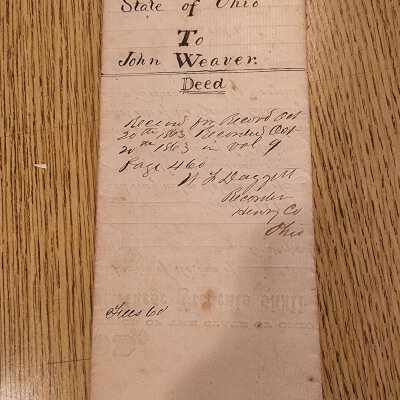 State of Ohio
To
John Weaver.
Deed
Receivd for Record Oct
20th 1863 Recorded Oct
20th 1863 in vol 9
Page 460
Daggett
Recorder
Henry Co
Ohio
Fees 60